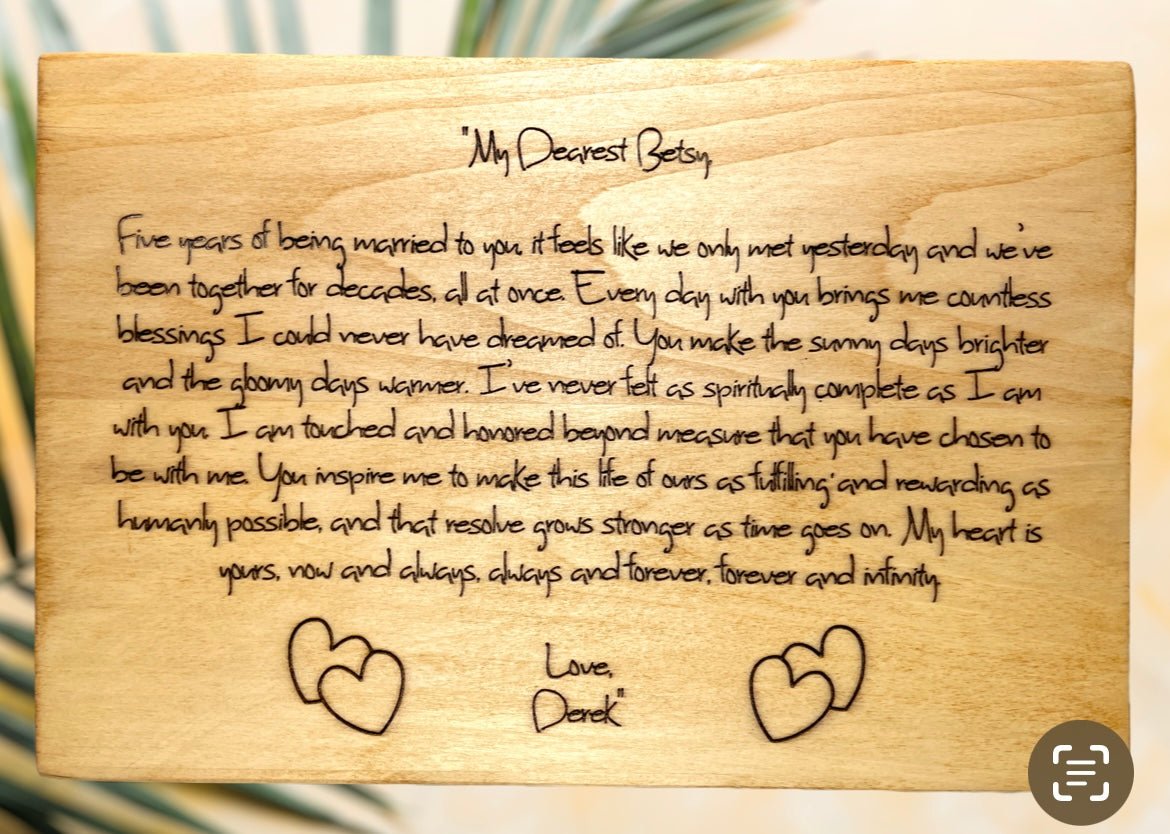 "My Dearest Betsy,
Five years of being married to you, it feels like we only met yesterday and we've
been together for decades, all at once. Every day with you brings me countless
blessings I could never have dreamed of. You make the sunny days brighter
and the gloomy days warmer. I've never felt as spiritually complete as I am
with you. I am touched and honored beyond measure that you have chosen to
be with me. You inspire me to make this life of ours as fulfilling and rewarding as
humanly possible, and that resolve grows stronger as time goes on. My heart is
yours, now and always, always and forever, forever and infinity.
Love,
Derek"